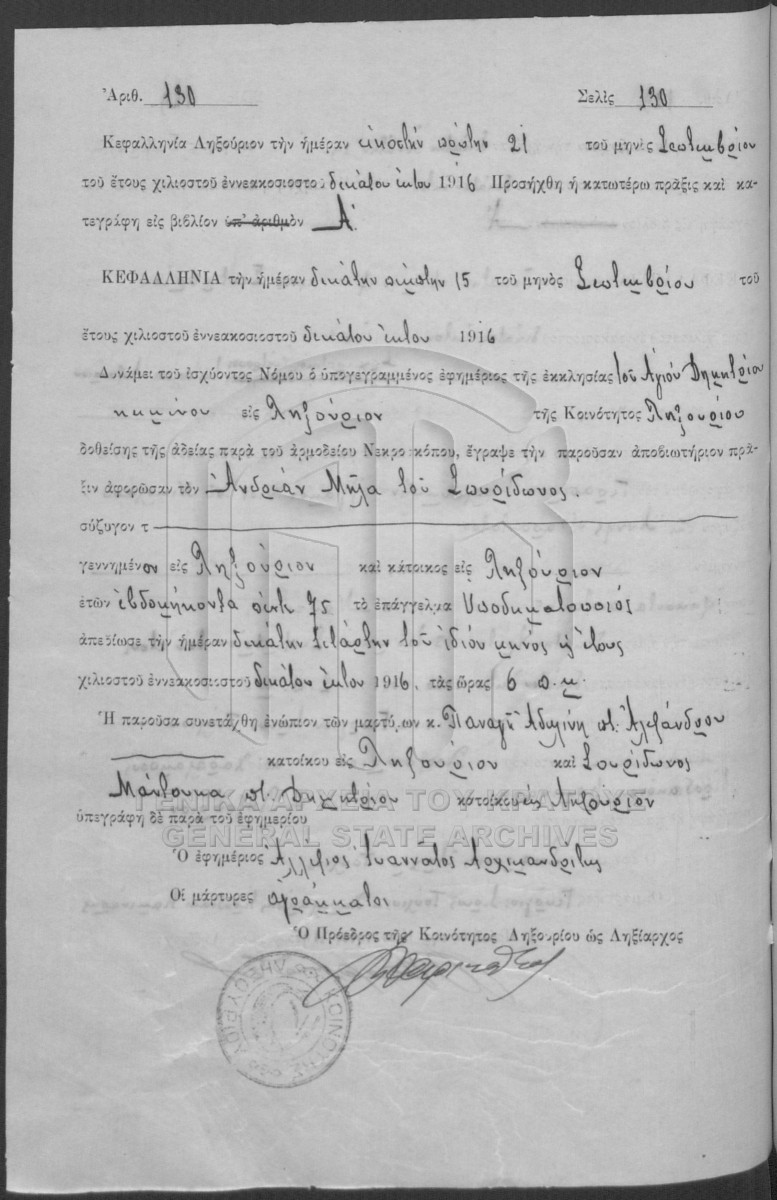 Ἀριθ. 130 Σελὶς 130
Κεφαλληνία Ληξούριον τὴν ἡμέραν εἰκοστὴν πρώτην 21 τοῦ μηνὸς Σεπτεμβρίου
τοῦ ἔτους χιλιοστοῦ ἐννεακοσιοστοῦ δεκάτου ἕκτου 1916 Προσήχθη ἡ κατωτέρω πρᾶξις καὶ κα-
τεγράφη εἰς βιβλίον ὑπ' ἀριθμὸν Α΄.
ΚΕΦΑΛΛΗΝΙΑ τὴν ἡμέραν δεκάτην πέμπτην 15 τοῦ μηνὸς Σεπτεμβρίου τοῦ
ἔτους χιλιοστοῦ ἐννεακοσιοστοῦ δεκάτου ἕκτου 1916
Δυνάμει τοῦ ἰσχύοντος Νόμου ὁ ὑπογεγραμμένος ἐφημέριος τῆς ἐκκλησίας τοῦ Ἁγίου Δημητρίου
εἰς Ληξούριον τῆς Κοινότητος Ληξουρίου
δοθείσης τῆς ἀδείας παρὰ τοῦ ἁρμοδείου Νεκροσκόπου, ἔγραψε τὴν παροῦσαν ἀποβιωτήριον πρᾶ-
ξιν ἀφορῶσαν τὸν Ἀνδρέαν Μήλα τοῦ Σπυρίδωνος.
σύζυγον τ
γεννημένον εἰς Ληξούριον καὶ κάτοικος εἰς Ληξούριον
ἐτῶν ἑβδομήκοντα πέντε 75 τὸ ἐπάγγελμα Ὑποδηματοποιός
ἀπεβίωσε τὴν ἡμέραν δεκάτην τετάρτην τοῦ ἰδίου μηνὸς ἔτους
χιλιοστοῦ ἐννεακοσιοστοῦ δεκάτου ἕκτου 1916, τὰς ὥρας 6 π.μ.
Ἡ παροῦσα συνετάχθη ἐνώπιον τῶν μαρτύρων κ. Παναγῆ Ἀδιλίνη ποτ. Ἀλεξάνδρου
κατοίκου εἰς Ληξούριον καὶ Σπυρίδωνος
Μάντουκα ποτ. Δημητρίου κατοίκου εἰς Ληξούριον
ΓΕΝΙΚΑ ΑΡΧΕΙΑ ΤΟΥ ΚΡΑΤΟΥΣ
ὑπεγράφη δὲ παρὰ τοῦ ἐφημερίου
GENERAL STATE ARCHIVES
Ὁ ἐφημέριος Ἰωαννᾶτος Ἀρχιμανδρίτης
Οἱ μάρτυρες ἀγράμματοι
Ὁ Πρόεδρος τῆς Κοινότητος Ληξουρίου ὡς Ληξίαρχος